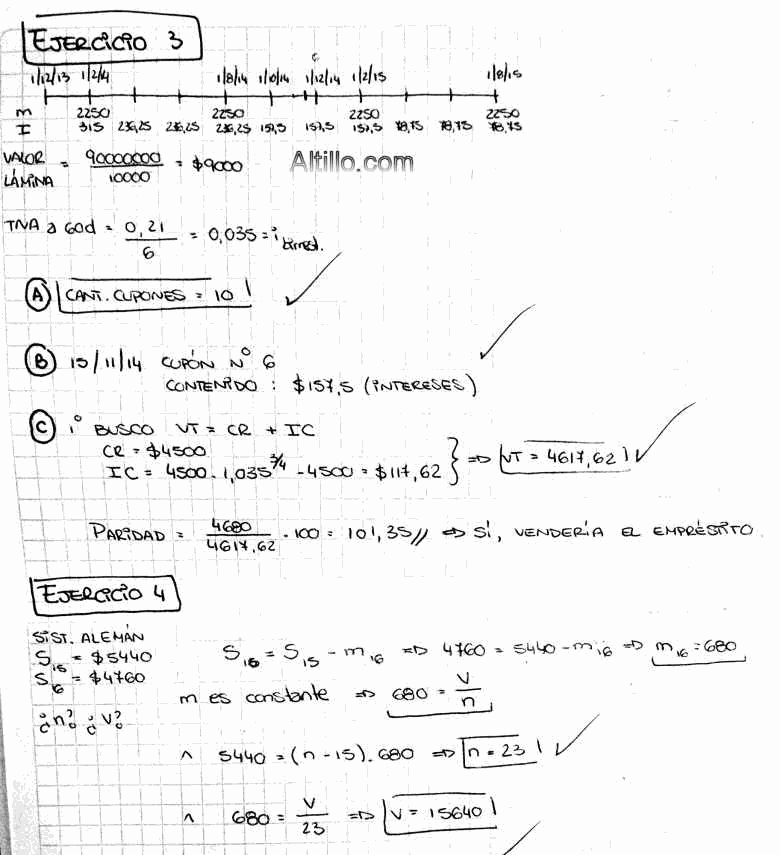 EJERCICIO 3
1/12/13 1/2/14 1/8/14 1/10/14 1/12/14 1/2/15 1/8/15
m 2250 2250 2250 2250
I 315 236,25 236,25 236,25 157,5 157,5 157,5 78,75 78,75 78,75
VALOR LÁMINA = 90000000 / 10000 = $9000
Altillo.com
TNA a 60d = 0,21 / 6 = 0,035 = i bimest.
A CANT. CUPONES = 10
B 15/11/14 CUPÓN Nº 6
CONTENIDO : $157,5 (INTERESES)
C 1º BUSCO VT = CR + IC
CR = $4500
IC = 4500 . 1,035^3/4 - 4500 = $117,62 } => VT = 4617,62
PARIDAD = 4680 / 4617,62 . 100 = 101,35 // => SÍ, VENDERÍA EL EMPRÉSTITO.
EJERCICIO 4
SIST. ALEMÁN
S15 = $5440
S16 = $4760
¿n? ¿V?
S16 = S15 - m16 => 4760 = 5440 - m16 => m16 = 680
m es constante => 680 = V / n
^ 5440 = (n - 15) . 680 => n = 23
^ 680 = V / 23 => V = 15640